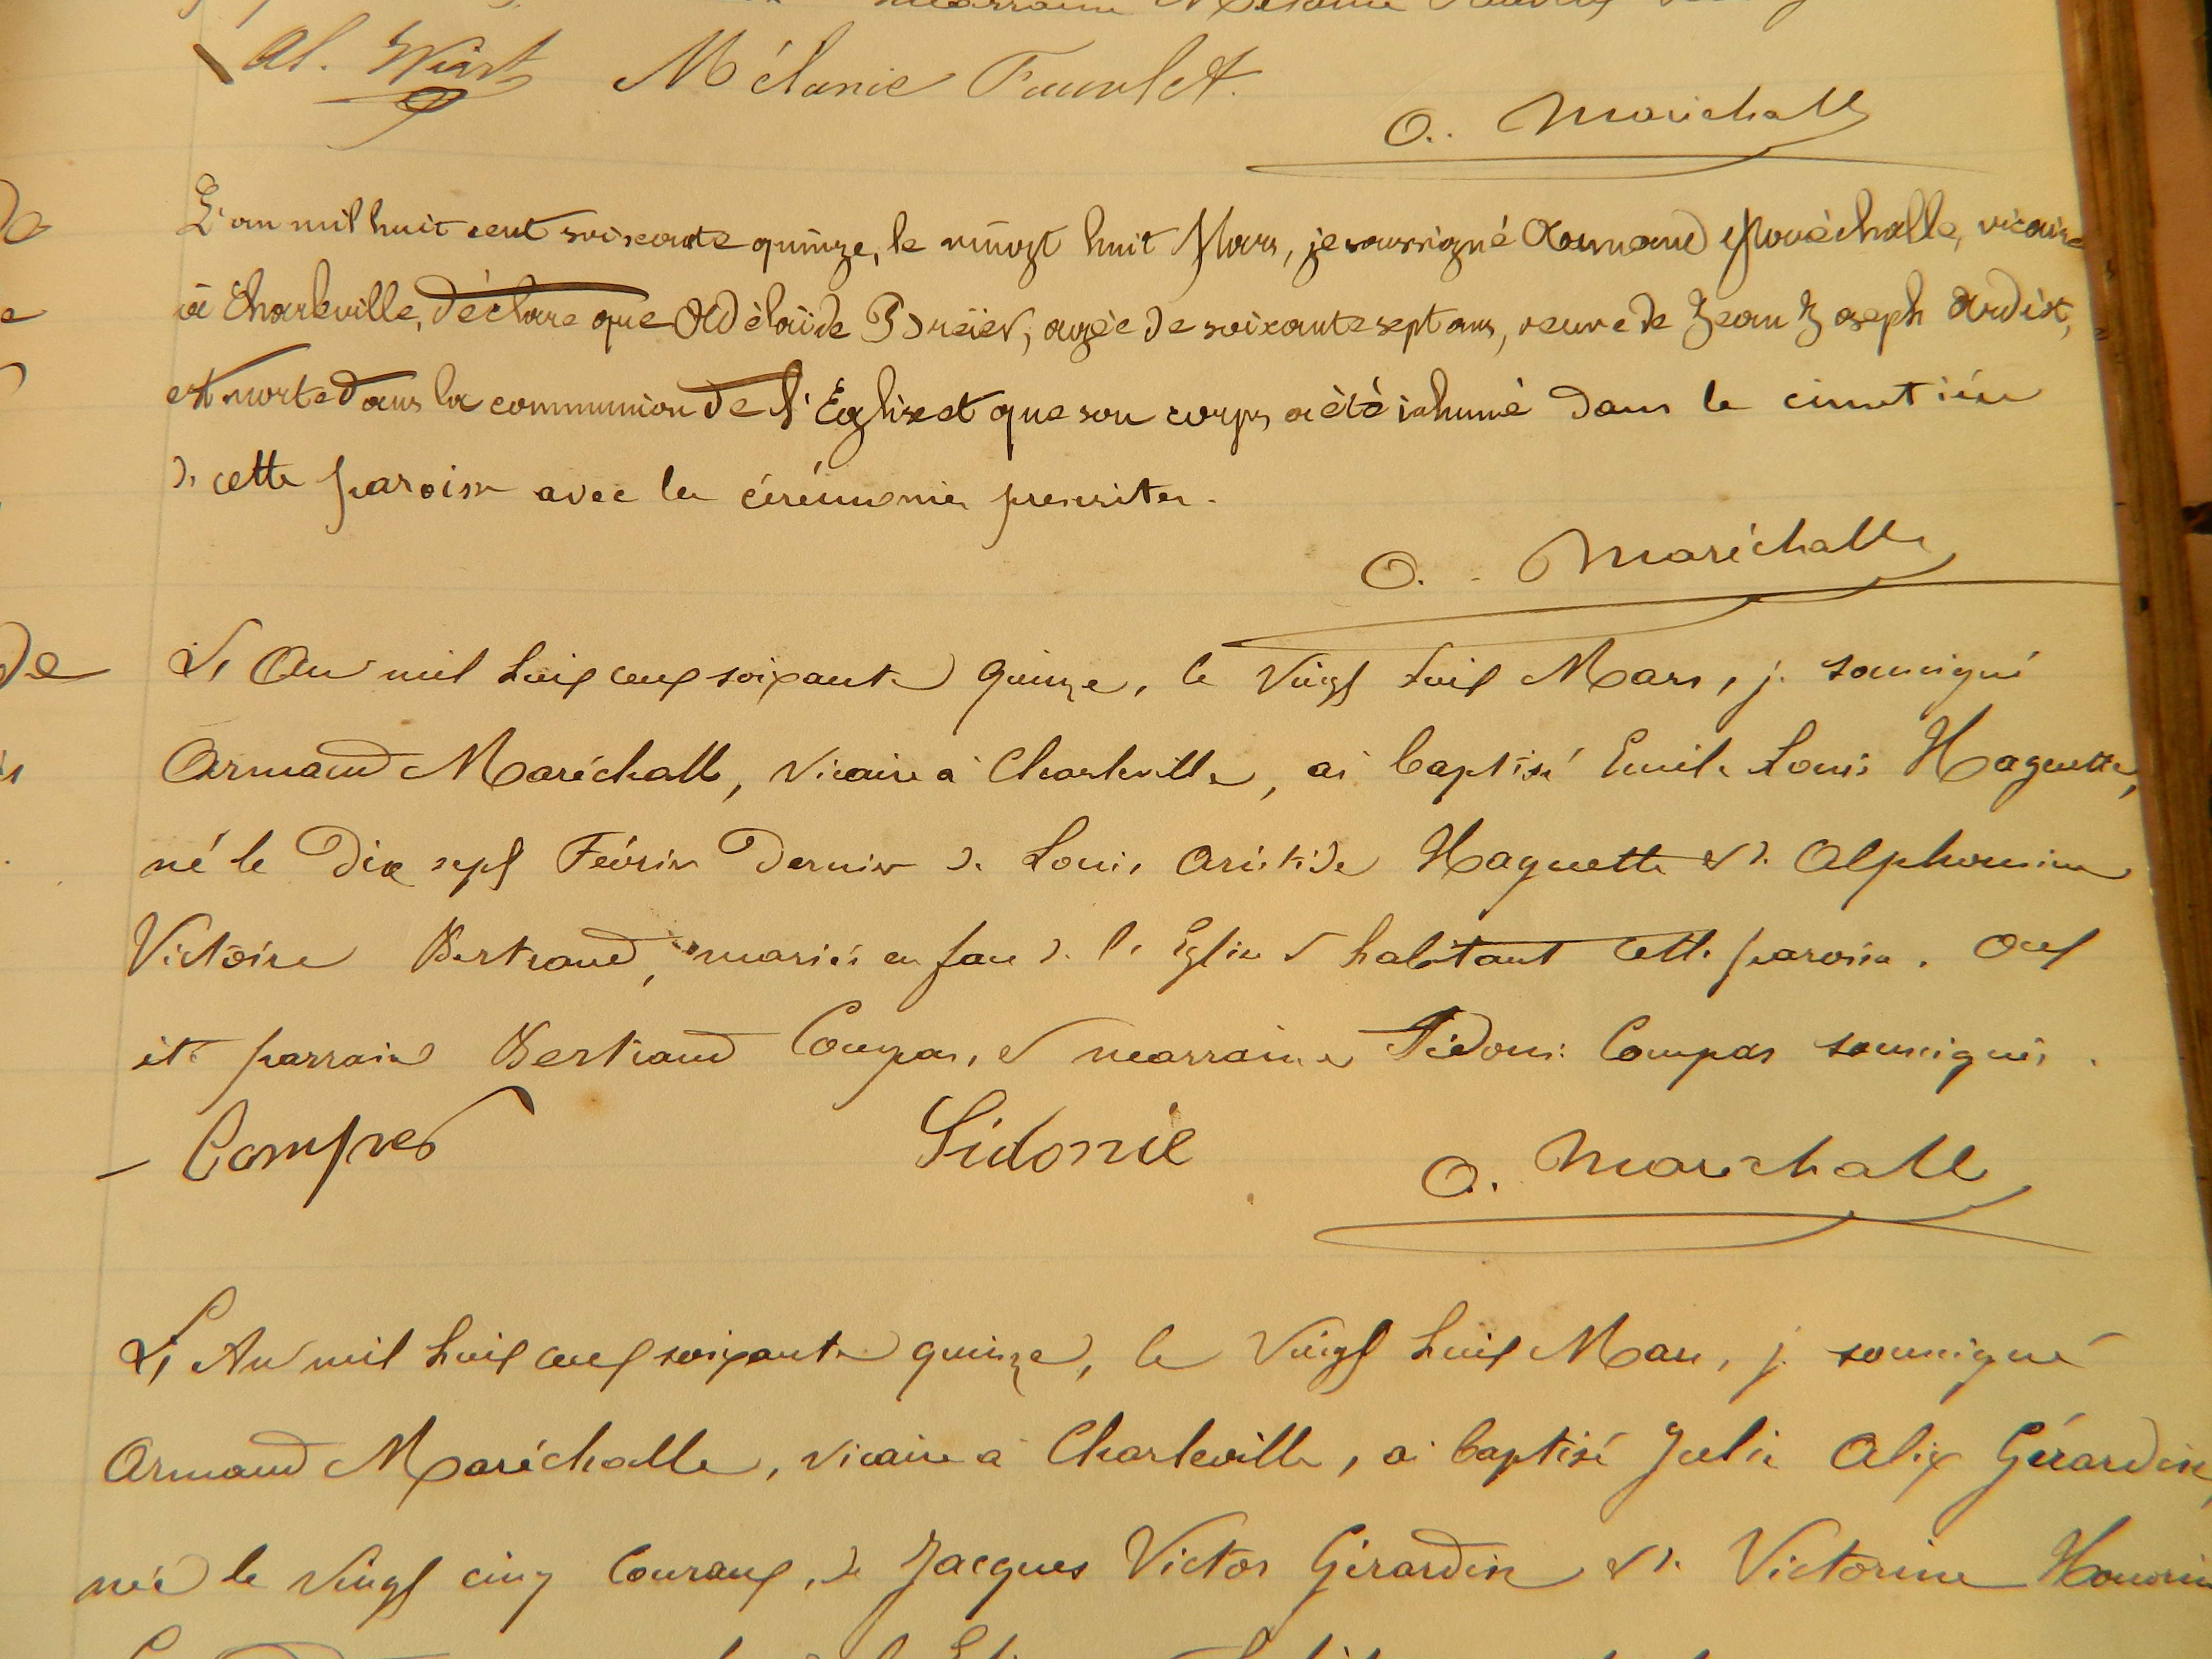 marraine Mélanie
Al. Wiart Mélanie
A. Maréchalle
L'an mil huit cent soixante quinze, le vingt huit Mars, je soussigné Armand Maréchalle, vicaire
à Charleville, déclare que Adélaïde agée de soixante sept ans, veuve de Jean Joseph Ardix,
est morte dans la communion de l'Eglise et que son corps a été inhumé dans le cimetière
de cette paroisse avec les cérémonies prescrites.
A. Maréchalle
de L'An mil huit cent soixante quinze, le vingt huit Mars, je soussigné
Armand Maréchalle, vicaire à Charleville, ai baptisé Emile Louis Haguette,
né le dix sept Février dernier de Louis Aristide Haguette et de Alphonsine
Victoire Bertrand, mariés en face de l'Eglise et habitant cette paroisse. Ont
été parrain Bertrand Compas, et marraine Sidonie Compas soussignés.
Sidonie
A. Maréchalle
L'An mil huit cent soixante quinze, le vingt huit Mars, je soussigné
Armand Maréchalle, vicaire à Charleville, ai baptisé Julie Alix Gérardin,
née le vingt cinq courant, de Jacques Victor Gérardin et de Victorine